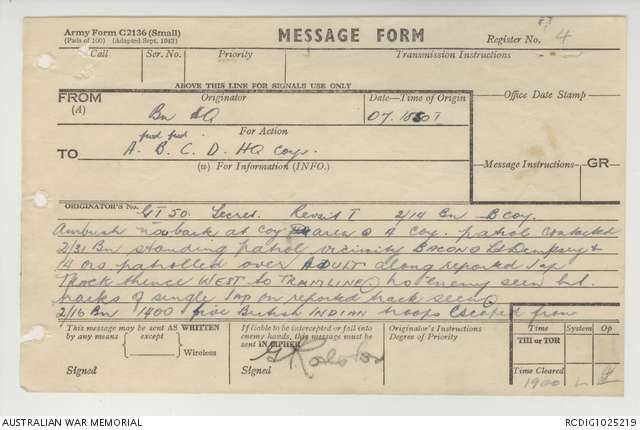 83
Army Form C2136 (Small)
(Pads of 100) (Adapted Sept. 1942)
MESSAGE FORM
Register No. 4
Call Ser. No. Priority Transmission Instructions
ABOVE THIS LINE FOR SIGNALS USE ONLY
FROM
(A)
Originator
Bn HQ
Date—Time of Origin
07.1850 I
Office Date Stamp
For Action
fwd fwd
TO A. B. C. D. HQ Coys.
(w) For Information (INFO.)
Message Instructions GR
ORIGINATOR'S No. GI 50. Secret. 2/14 Bn B Coy.
Ambush now back at Coy area A Coy. patrol contacted
2/31 Bn standing patrol vicinity BACON Lt Dempsey &
14 ors patrolled over ADULT along reported Jap
track thence WEST to TRAMLINE no enemy seen but
tracks of single Jap on reported track seen
2/16 Bn 1400 five British INDIAN troops escaped from
This message may be sent AS WRITTEN
by any means except
Wireless
Signed
If liable to be intercepted or fall into
enemy hands, this message must be
sent IN CIPHER
Signed
Originator's Instructions
Degree of Priority
Time System Op
THI or TOR
Time Cleared
1900 L
AUSTRALIAN WAR MEMORIAL RCDIG1025219